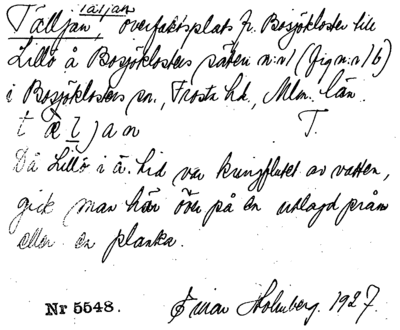 tätjan
Tälljan, överfartsplats fr. Bosjökloster till
Lillö å Bosjöklosters säteri n:o 1 (fig n:o 1 b)
i Bosjöklosters sn, Frosta hd, Mlm. län.
t æ l j a n T.
Då Lillö i ä. tid var kringflutet av vatten,
gick man här över på en utlagd pråm
eller en planka.
Nr 5548. Einar Holmberg. 1927.